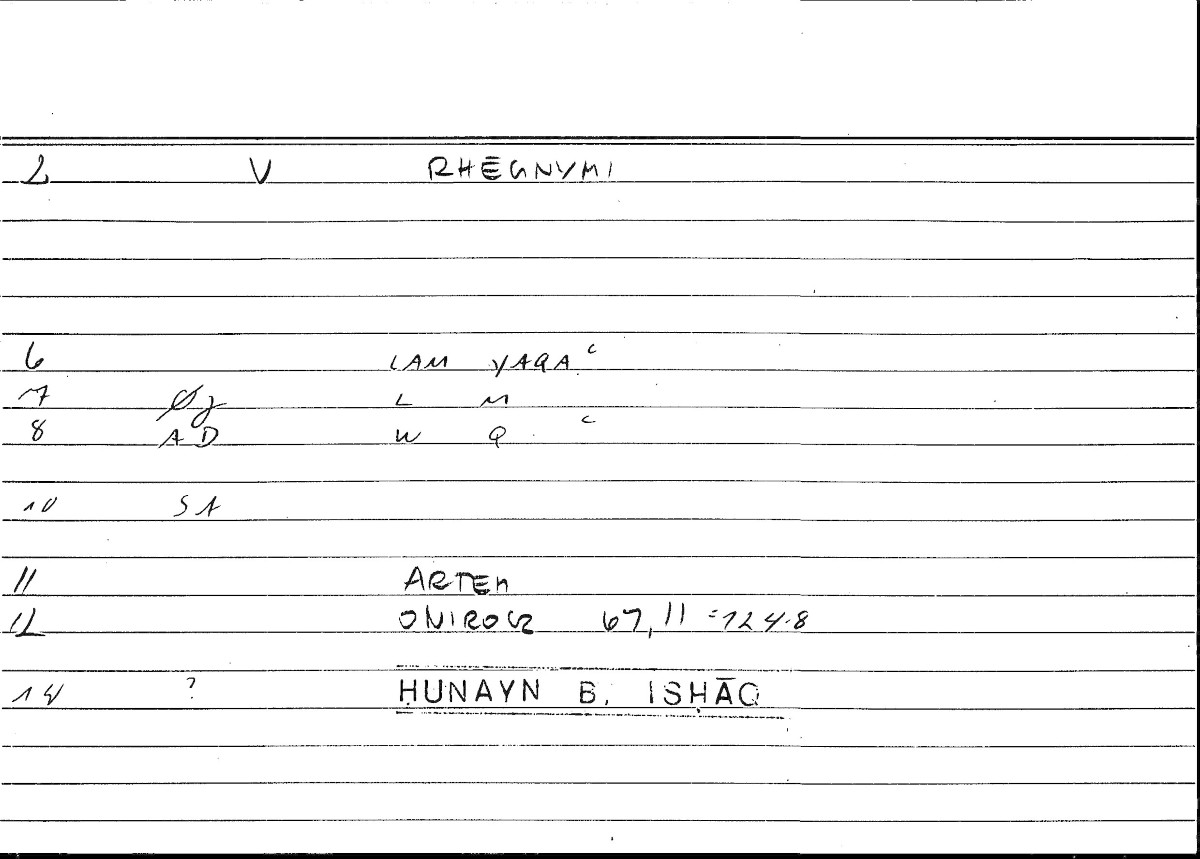 2 V RHĒGNYMI
6 LAM YAQA ᶜ
7 Øg L M
8 AD W Q ᶜ
10 SA
11 ARTEM
12 ONIROCR 67,11 = 124.8
14 ? ḤUNAYN B. ISḤĀQ